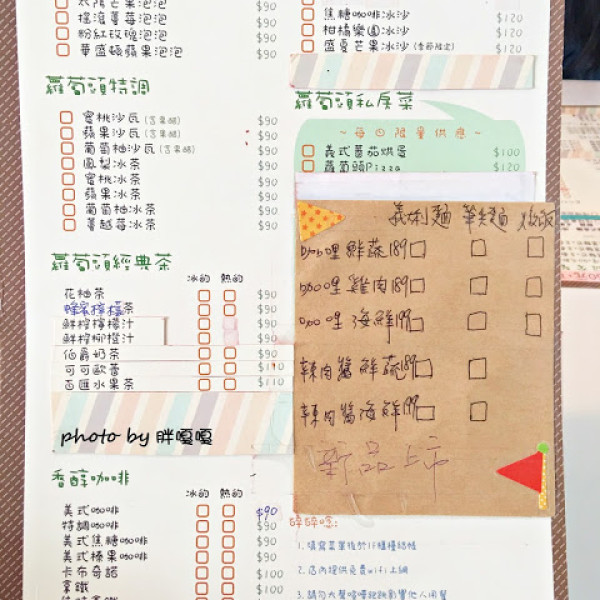 太陽芒果泡泡 $90
搖滾草莓泡泡 $90
粉紅玫瑰泡泡 $90
華盛頓蘋果泡泡 $90
蘿蔔頭特調
蜜桃沙瓦(含果醋) $90
蘋果沙瓦(含果醋) $90
葡萄柚沙瓦(含果醋) $90
鳳梨冰茶 $90
蜜桃冰茶 $90
蘋果冰茶 $90
葡萄柚冰茶 $90
蔓越莓冰茶 $90
蘿蔔頭經典茶
冰的 熱的
花柚茶 $90
蜂蜜檸檬茶 $90
鮮榨檸檬汁 $90
鮮榨柳橙汁 $90
伯爵奶茶 $90
可可歐蕾 $110
百匯水果茶 $110
photo by 胖嘎嘎
香醇咖啡
冰的 熱的
美式咖啡 $90
特調咖啡 $90
美式焦糖咖啡 $90
美式榛果咖啡 $90
卡布奇諾 $100
拿鐵 $100
焦糖咖啡冰沙 $120
柑橘樂園冰沙 $120
盛夏芒果冰沙(季節限定) $120
蘿蔔頭私房菜
~每日限量供應~
義式番茄烘蛋 $100
蘿蔔頭Pizza $120
義大利麵 筆尖麵
咖哩鮮蔬189
咖哩雞肉189
咖哩海鮮199
辣肉醬鮮蔬189
辣肉醬海鮮199
新品上市
碎碎唸:
1.填寫菜單後於1F櫃檯結帳
2.店內提供免費wifi上網
3.請勿大聲喧嘩